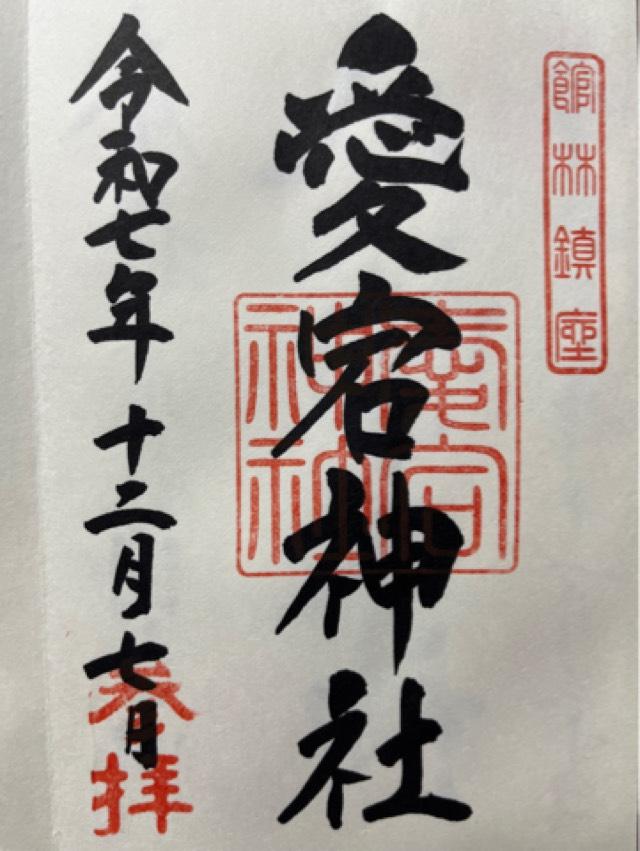 館林鎮座
愛宕神社
愛宕
神社
令和七年十二月七日
参拝